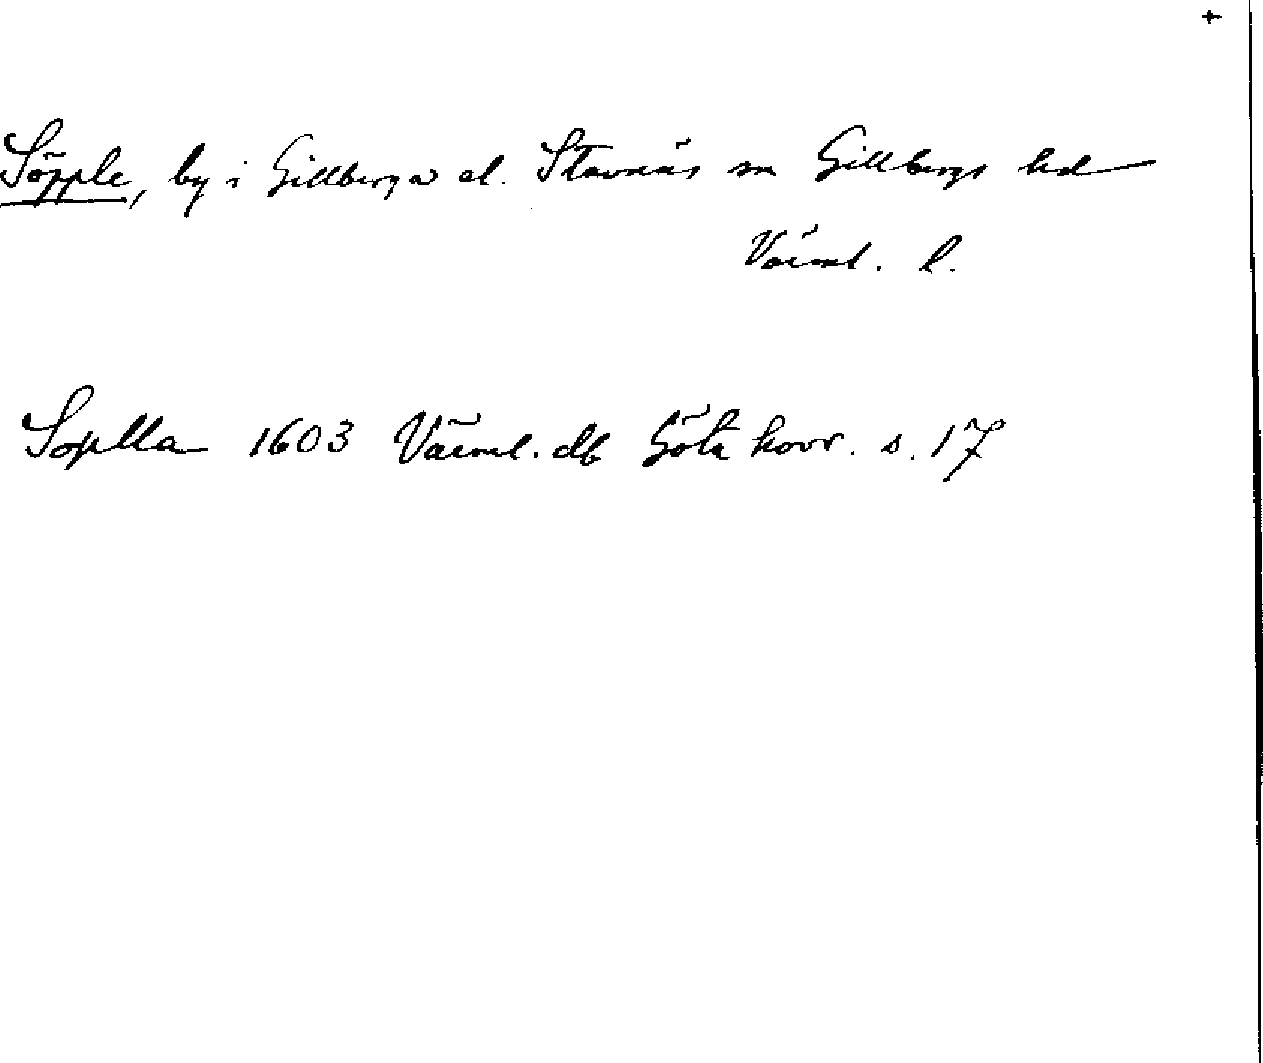 +
Söpple, by i Gillberga el. Stavnäs sn Gillbergs hd
Värml. l.
Soplla 1603 Värml. db Göta hovr. s. 17